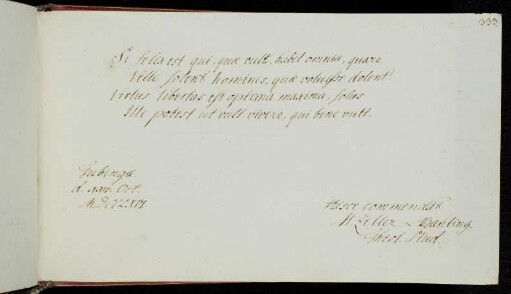 333
Si felix est qui, quæ vult, habet omnia, quare
Velle solent homines, quæ voluisse dolent?
Virtus libertas est optima maxima, solus
Ille potest ut vult vivere, qui bene vult.
Tubingæ
d. Oct.
Hisce commendat
M. Zeller
Theol. Stud.